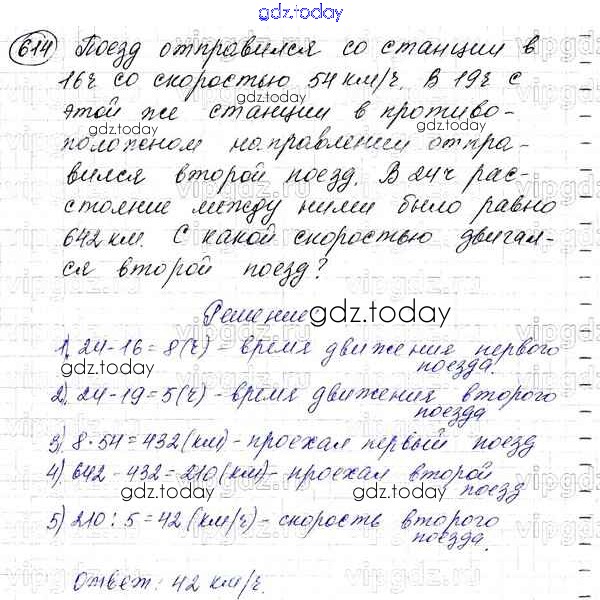 gdz.today
614 Поезд отправился со станции в
16ч со скоростью 54 км/ч. В 19ч с
этой же станции в противо-
положном направлении отпра-
вился второй поезд. В 24ч рас-
стояние между ними было равно
642 км. С какой скоростью двигал-
ся второй поезд?
Решение
1) 24-16=8(ч) - время движения первого
поезда.
2) 24-19=5(ч) - время движения второго
поезда
3) 8·54=432(км) - проехал первый поезд
4) 642-432=210(км) - проехал второй
поезд
5) 210:5=42(км/ч) - скорость второго
поезда.
Ответ: 42 км/ч.